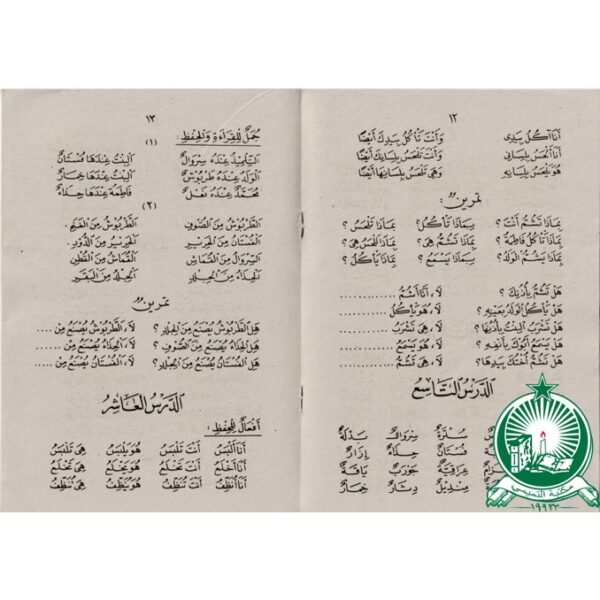 ١٢
أَنَا آكُلُ بِيَدِي وَأَنْتَ تَأْكُلُ بِيَدِكَ أَيْضًا
أَنَا أَلْحَسُ بِلِسَانِي وَأَنْتَ تَلْحَسُ بِلِسَانِكَ أَيْضًا
هُوَ يَلْحَسُ بِلِسَانِهِ وَهِيَ تَلْحَسُ بِلِسَانِهَا أَيْضًا
تَمْرِينٌ :
بِمَاذَا تَشُمُّ أَنْتَ ؟ بِمَاذَا تَأْكُلُ ؟ بِمَاذَا تَلْحَسُ ؟
بِمَاذَا تَأْكُلُ فَاطِمَةُ ؟ بِمَاذَا تَشُمُّ هِيَ ؟ بِمَاذَا تَلْحَسُ هِيَ ؟
بِمَاذَا يَشُمُّ الْوَلَدُ ؟ بِمَاذَا يَسْمَعُ ؟ بِمَاذَا يَأْكُلُ ؟
هَلْ تَشُمُّ بِأُذُنِكَ ؟ لَا ، أَنَا أَشُمُّ ..........
هَلْ يَأْكُلُ الْوَلَدُ بِعَيْنِهِ ؟ لَا ، هُوَ يَأْكُلُ ..........
هَلْ تَشْرَبُ الْبِنْتُ بِأُذُنِهَا ؟ لَا ، هِيَ تَشْرَبُ ..........
هَلْ يَسْمَعُ أَبُوكَ بِأَنْفِهِ ؟ لَا ، هُوَ يَسْمَعُ ..........
هَلْ تَشُمُّ أُخْتُكَ بِيَدِهَا ؟ لَا ، هِيَ تَشُمُّ ..........
الدَّرْسُ التَّاسِعُ
سُتْرَةٌ سِرْوَالٌ بَذْلَةٌ
فُسْتَانٌ حِذَاءٌ إِزَارٌ
عِرَاقِيَّةٌ جَوْرَبٌ يَاقَةٌ
مِنْدِيلٌ دِثَارٌ خِمَارٌ
١٣
جُمَلٌ لِلْقِرَاءَةِ وَالْحِفْظِ :
(١)
التِّلْمِيذُ عِنْدَهُ سِرْوَالٌ الْبِنْتُ عِنْدَهَا فُسْتَانٌ
الْوَلَدُ عِنْدَهُ طَرْبُوشٌ الْبِنْتُ عِنْدَهَا خِمَارٌ
مُحَمَّدٌ عِنْدَهُ نَعْلٌ فَاطِمَةُ عِنْدَهَا حِذَاءٌ
(٢)
الطَّرْبُوشُ مِنَ الصُّوفِ الصُّوفُ مِنَ الْغَنَمِ .
الْفُسْتَانُ مِنَ الْحَرِيرِ الْحَرِيرُ مِنَ الدُّودِ .
السِّرْوَالُ مِنَ الْقُمَاشِ الْقُمَاشُ مِنَ الْقُطْنِ
الْحِذَاءُ مِنَ الْجِلْدِ الْجِلْدُ مِنَ الْبَقَرِ
تَمْرِينٌ
هَلِ الطَّرْبُوشُ يُصْنَعُ مِنَ الْجِلْدِ ؟ لَا ، الطَّرْبُوشُ يُصْنَعُ مِنْ ....
هَلِ الْحِذَاءُ يُصْنَعُ مِنَ الصُّوفِ ؟ لَا ، الْحِذَاءُ يُصْنَعُ مِنْ ....
هَلِ الْفُسْتَانُ يُصْنَعُ مِنَ الْجِلْدِ ؟ لَا ، الْفُسْتَانُ يُصْنَعُ مِنْ ....
الدَّرْسُ الْعَاشِرُ
أَفْعَالٌ لِلْحِفْظِ :
أَنَا أَلْبَسُ أَنْتَ تَلْبَسُ هُوَ يَلْبَسُ هِيَ تَلْبَسُ
أَنَا أَخْلَعُ أَنْتَ تَخْلَعُ هُوَ يَخْلَعُ هِيَ تَخْلَعُ
أَنَا أُنَظِّفُ أَنْتَ تُنَظِّفُ هُوَ يُنَظِّفُ هِيَ تُنَظِّفُ
١٩٩٣